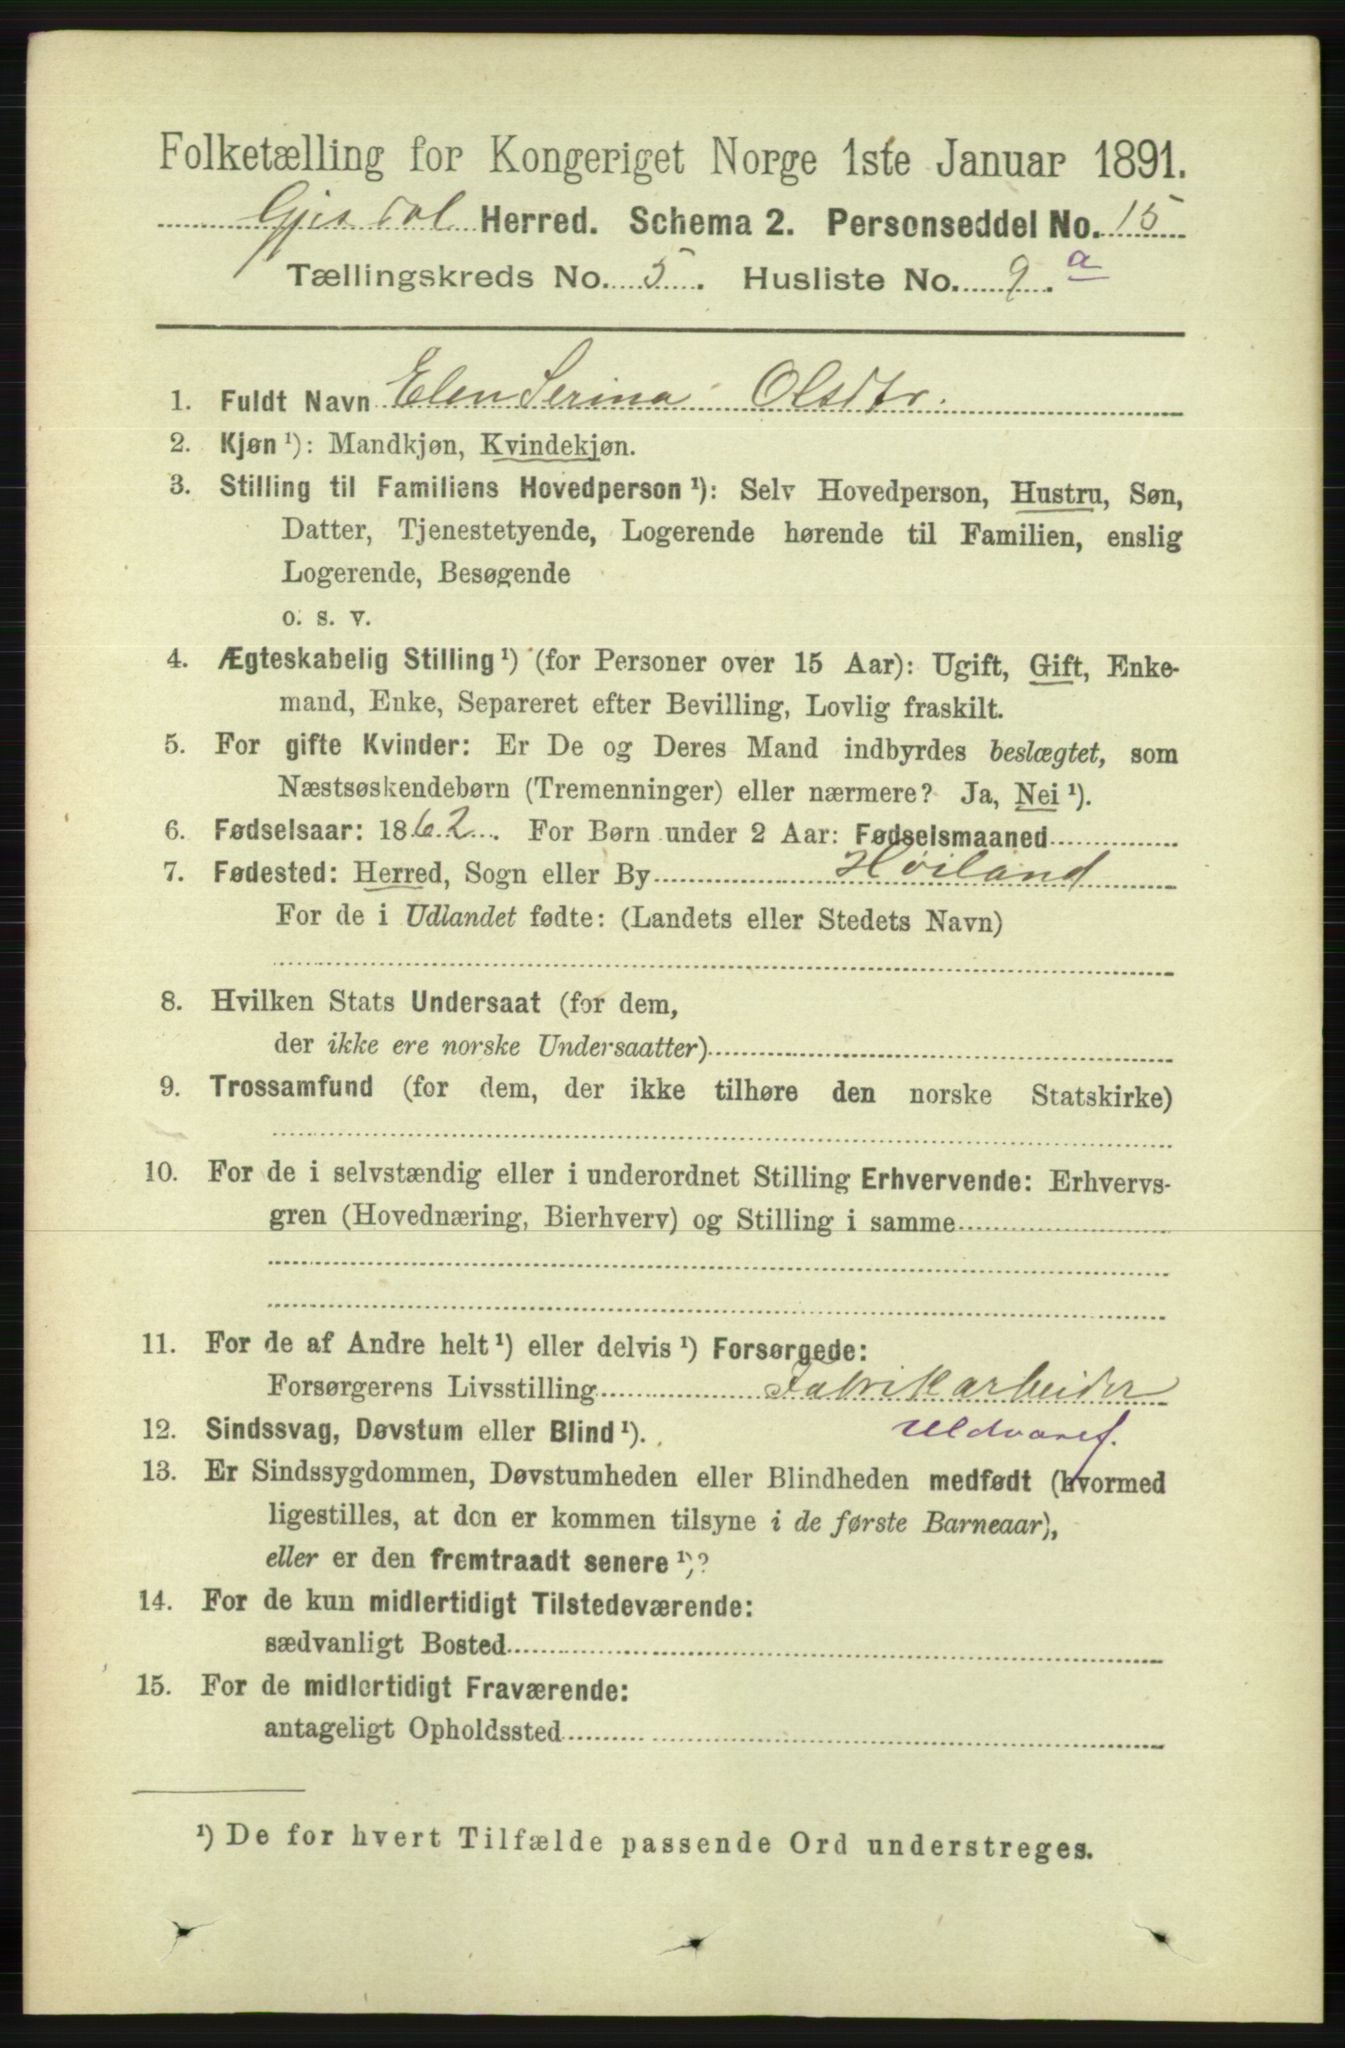 Folketælling for Kongeriget Norge 1ste Januar 1891.
Gjesdal Herred. Schema 2. Personseddel No. 15
Tællingskreds No. 5. Husliste No. 9. a
1. Fuldt Navn Elen Serina Olsdtr.
2. Kjøn ¹): Mandkjøn, Kvindekjøn.
3. Stilling til Familiens Hovedperson ¹): Selv Hovedperson, Hustru, Søn,
Datter, Tjenestetyende, Logerende hørende til Familien, enslig
Logerende, Besøgende
o. s. v.
4. Ægteskabelig Stilling ¹) (for Personer over 15 Aar): Ugift, Gift, Enke-
mand, Enke, Separeret efter Bevilling, Lovlig fraskilt.
5. For gifte Kvinder: Er De og Deres Mand indbyrdes beslægtet, som
Næstsøskendebørn (Tremenninger) eller nærmere? Ja, Nei ¹).
6. Fødselsaar: 1862. For Børn under 2 Aar: Fødselsmaaned
7. Fødested: Herred, Sogn eller By Høiland
For de i Udlandet fødte: (Landets eller Stedets Navn)
8. Hvilken Stats Undersaat (for dem,
der ikke ere norske Undersaatter)
9. Trossamfund (for dem, der ikke tilhøre den norske Statskirke)
10. For de i selvstændig eller i underordnet Stilling Erhvervende: Erhvervs-
gren (Hovednæring, Bierhverv) og Stilling i samme
11. For de af Andre helt ¹) eller delvis ¹) Forsørgede:
Forsørgerens Livsstilling Fabrikarbeider
Uldvaref.
12. Sindssvag, Døvstum eller Blind ¹).
13. Er Sindssygdommen, Døvstumheden eller Blindheden medfødt (hvormed
ligestilles, at den er kommen tilsyne i de første Barneaar),
eller er den fremtraadt senere ¹)?
14. For de kun midlertidigt Tilstedeværende:
sædvanligt Bosted
15. For de midlertidigt Fraværende:
antageligt Opholdssted
¹) De for hvert Tilfælde passende Ord understreges.